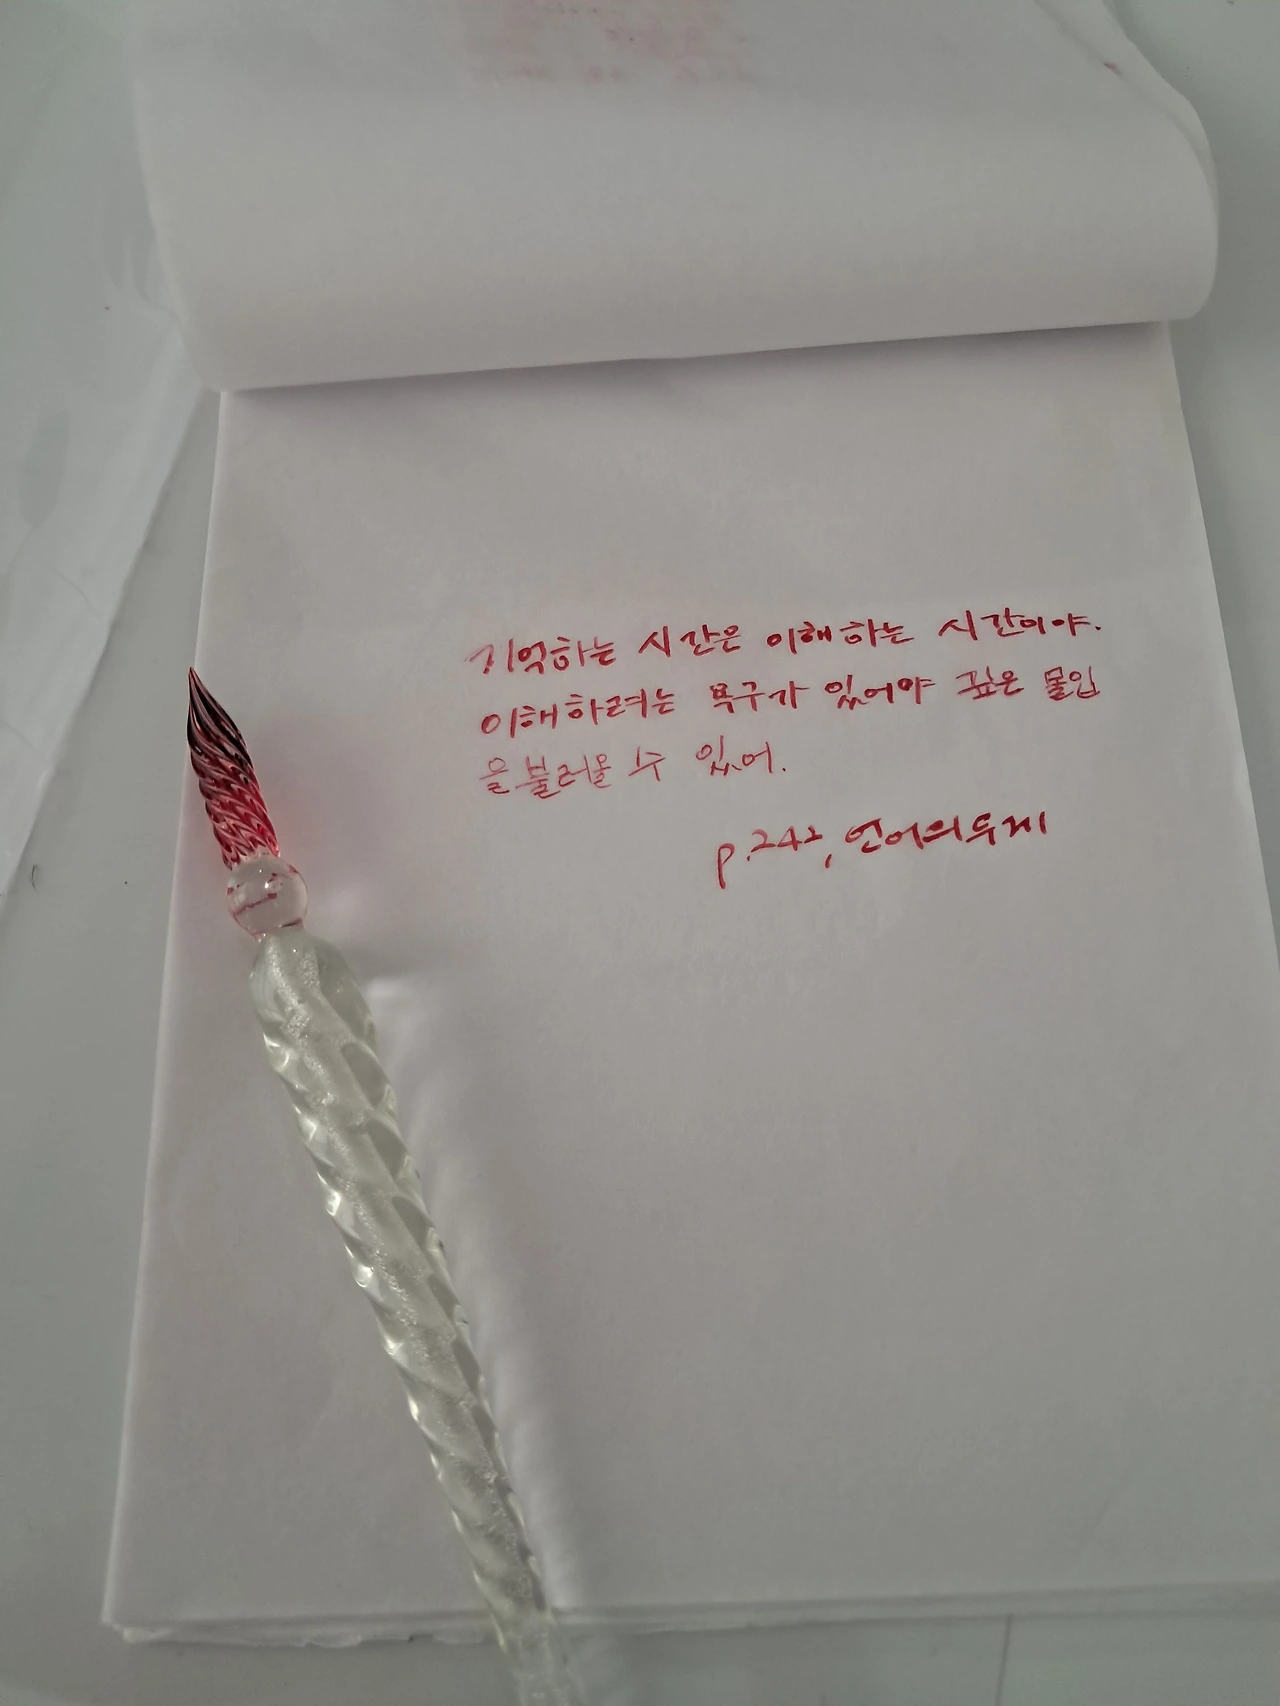 기억하는 시간은 이해하는 시간이야.
이해하려는 욕구가 있어야 깊은 몰입
을 불러올 수 있어.
p.242, 언어의 무게